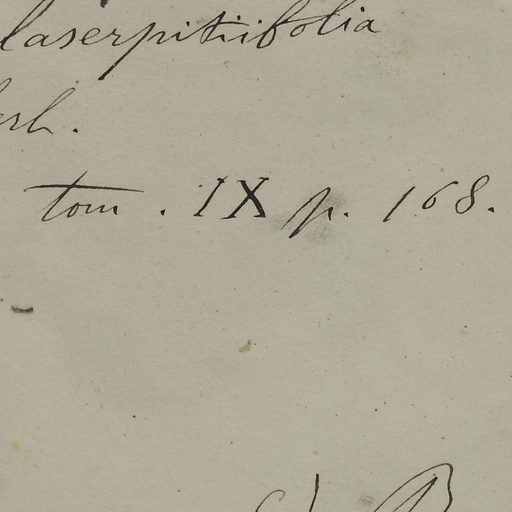 laserpitiifolia
erh.
tom. IX p. 168.